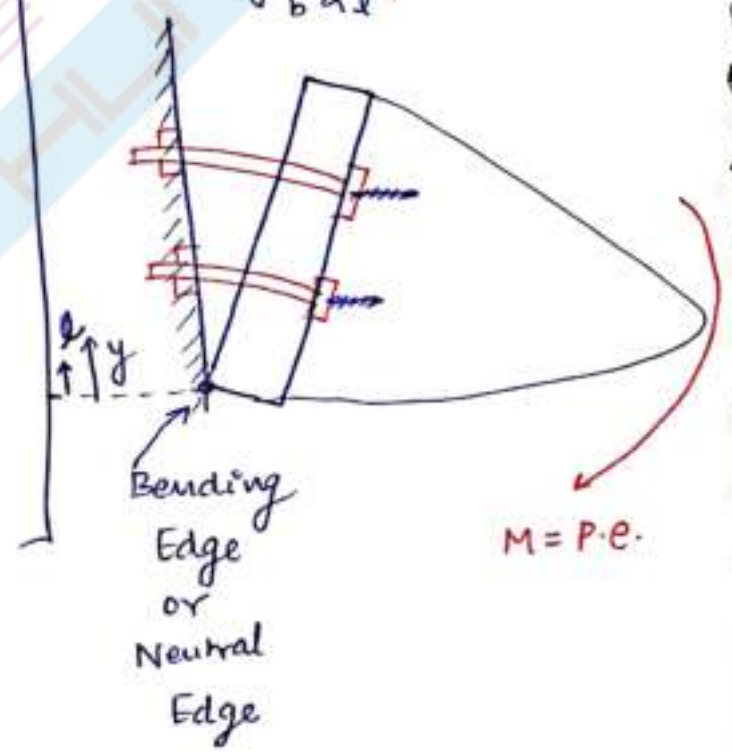 l y
Bending
Edge
or
Neutral
Edge
M = P.e.